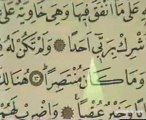 عَلَىٰ مَا أَنفَقَ فِيهَا وَهِيَ خَاوِيَةٌ عَلَىٰ
أُشْرِكْ بِرَبِّي أَحَدًا ۝ وَلَمْ تَكُن لَّهُ
وَمَا كَانَ مُنتَصِرًا ۝ هُنَالِكَ
وَخَيْرٌ عُقْبًا ۝ وَاضْرِبْ لَهُم